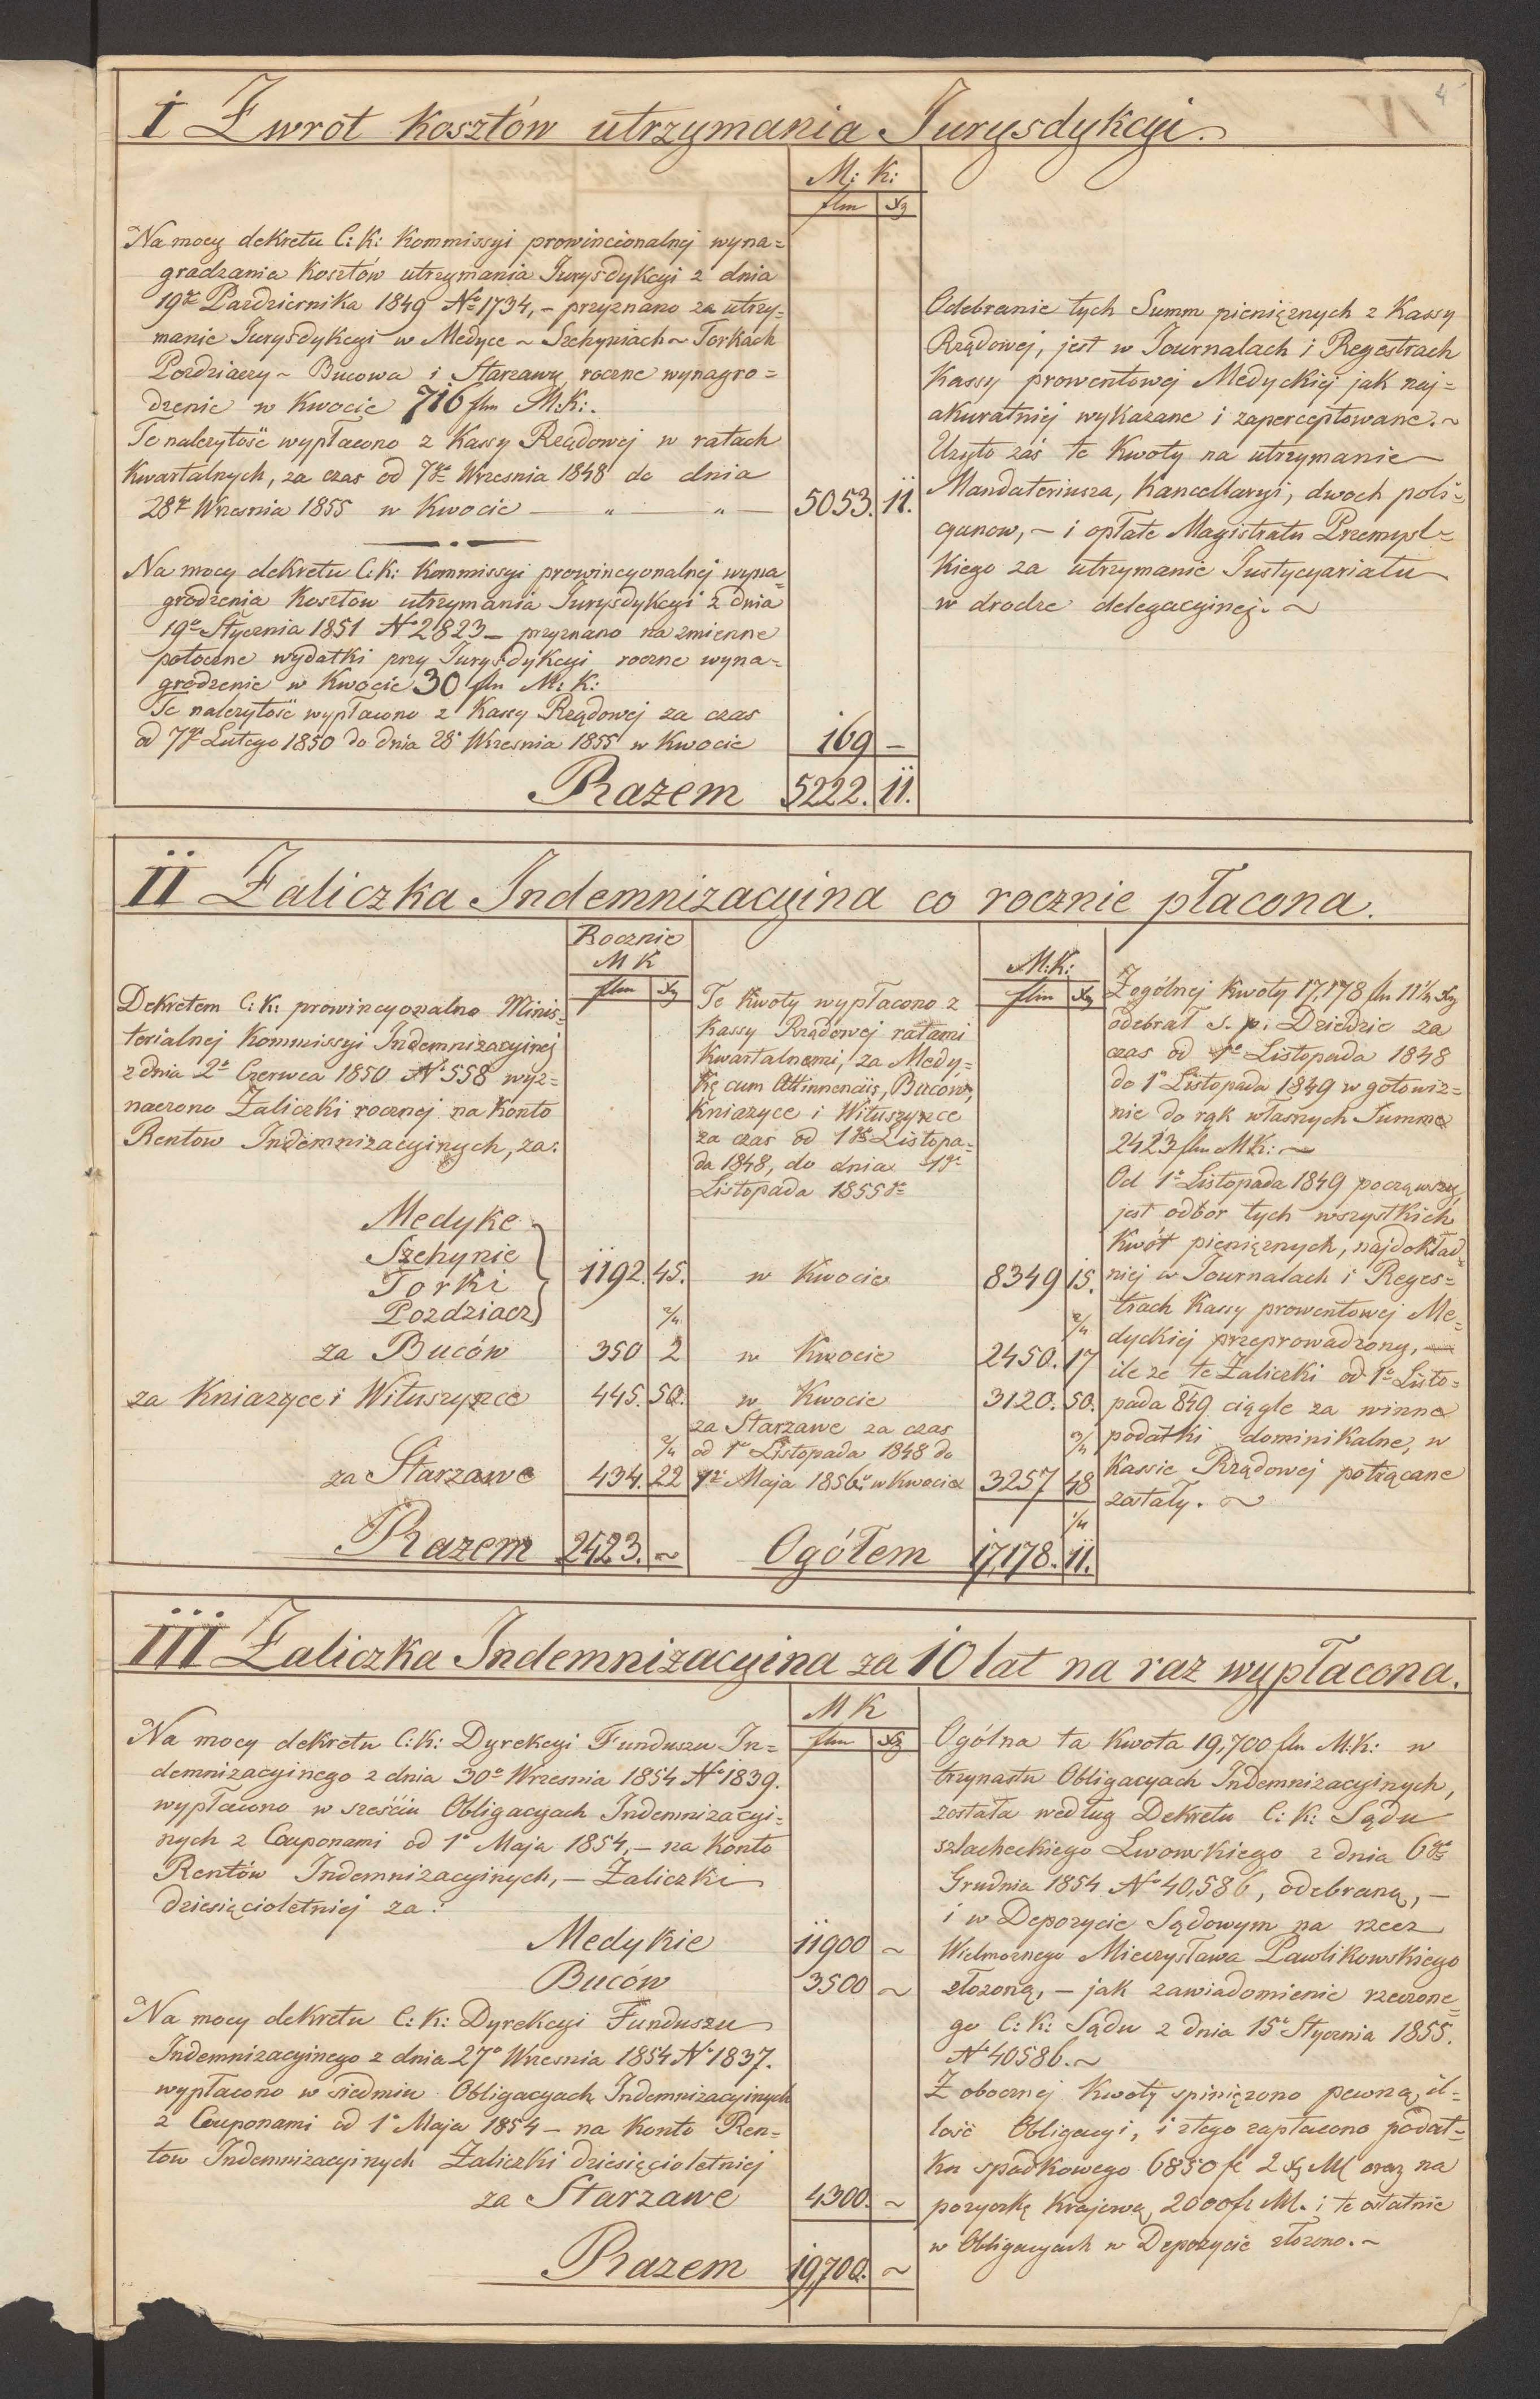 4
I Zwrot kosztów utrzymania Jurysdykcyi.
M: K:
flm xg
Na mocy dekretu C: K: Kommissyi prowincionalnej wyna=
gradzania kosztów utrzymania Jurysdykcyi z dnia
19go Pazdziernika 1849 No 1734, – przyznano za utrzy-
manie Jurysdykcyi w Medyce ~ Szehyniach ~ Torkach
Pozdziaczy ~ Bucowa i Starzawy roczne wynagro=
dzenie w Kwocie 716 flm M:K:.
Te nalezytość wypłacono z Kassy Rządowej w ratach
Kwartalnych, za czas od 7go Wrzesnia 1848 do dnia
28go Wrzesnia 1855 w Kwocie — „ — „ — 5053. 11.
Na mocy dekretu C: K: Kommissyi prowincyonalnej wyna=
grodzenia Kosztów utrzymania Jurysdykcyi z dnia
19o Stycznia 1851 No 2823 – przyznano na zmienne
potoczne wydatki przy Jurysdykcyi roczne wyna=
grodzenie w Kwocie 30 flm M: K:
Te nalezytość wypłacono z Kassy Rządowej za czas
od 7go Lutego 1850 do dnia 28o Wrzesnia 1855 w Kwocie 169 –
Razem 5222. 11.
Odebranie tych Summ pieniężnych z Kassy
Rządowej, jest w Journalach i Regestrach
Kassy prowentowej Medyckiej jak naj=
akuratniej wykazane i zaperceptowane. ~
Użyto zaś te Kwoty na utrzymanie
Mandateriusza, Kancellaryi, dwoch poli=
cyanow, – i opłate Magistratu Przemysl=
kiego za utrzymanie Justycyariatu
w drodze delegacyinej. ~
II Zaliczka Indemnizacyina co rocznie płacona.
Rocznie
M K
flm xg
Dekretem C: K: prowincyonalno Minis=
terialnej Kommissyi Indemnizacyinej
z dnia 2o Czerwca 1850 No 558 wyz=
naczono Zaliczki rocznej na Konto
Rentow Indemnizacyinych, za:
Medyke
Szehynie
Torki
Pozdziacz
1192. 45.
2/4
za Buców 350 2
za Kniazyce i Wituszynce 445. 50.
2/4
za Starzawe 434. 22
Razem 2423. ~
Te Kwoty wypłacono z
Kassy Rządowej ratami
Kwartalnemi, za Medy=
kę cum Attinnenciis, Bucow,
Kniazyce i Wituszynce
za czas od 1go Listopa=
da 1848, do dnia 1go
Listopada 1855go
M: K:
flm xg
w Kwocie 8349 15.
2/4
w Kwocie 2450. 17
w Kwocie 3120. 50.
za Starzawe za czas
od 1go Listopada 1848 do
1go Maja 1856o w Kwocie 3257 48
3/4
1/4
Ogółem 17,178. 11.
Z ogólnej Kwoty 17,178 flm 11 1/4 xg
odebrał s. p: Dziedzic za
czas od 1o Listopada 1848
do 1o Listopada 1849 w gotowiz=
nie do rąk własnych Summe
2423 flm MK: ~
Od 1o Listopada 1849 począwszy,
jest odbór tych wszystkich
Kwót pieniężnych, najdokład=
niej w Journalach i Reges=
trach Kassy prowentowej Me=
dyckiej przeprowadzony,
ile ze te Zaliczki od 1o Listo=
pada 849 ciągle za winne
podatki dominikalne, w
Kassie Rządowej potrącane
zostały. ~
III Zaliczka Indemnizacyina za 10 lat na raz wypłacona.
M K
flm xg
Na mocy dekretu C: K: Dyrekcyi Funduszu In=
demnizacyinego z dnia 30o Wrzesnia 1854 No 1839.
wypłacono w sześciu Obligacyach Indemnizacyi=
nych z Couponami od 1o Maja 1854, – na Konto
Rentów Indemnizacyinych, – Zaliczki
dziesięcioletniej za:
Medykie 11900 ~
Buców 3500 ~
Na mocy dekretu C: K: Dyrekcyi Funduszu
Indemnizacyinego z dnia 27o Wrzesnia 1854 No 1837.
wypłacono w siedmiu Obligacyach Indemnizacyinych
z Couponami od 1o Maja 1854 – na Konto Ren=
tow Indemnizacyinych Zaliczki dziesięcioletniej
za Starzawe 4300. ~
Razem 19,700. ~
Ogólna ta Kwota 19,700 flm M: K: w
trzynastu Obligacyach Indemnizacyinych,
została według Dekretu C: K: Sądu
szlacheckiego Lwowskiego z dnia 6go
Grudnia 1854 No 40,586, odebraną, –
i w Depozycie Sądowym na rzecz
Wielmoznego Mieczysława Pawlikowskiego
złozoną, – jak zawiadomienie rzeczone=
go C: K: Sądu z dnia 15o Stycznia 1855.
No 40586. ~
Z obocznej Kwoty spiniężono pewną, il=
lość Obligacyi, i ztego zapłacono podat=
ku spadkowego 6850 fl 2 xg M oraz na
pozyczkę Krajową, 2000 fl M. i te ostatnie
w Obligacyach w Depozycie złozono. ~